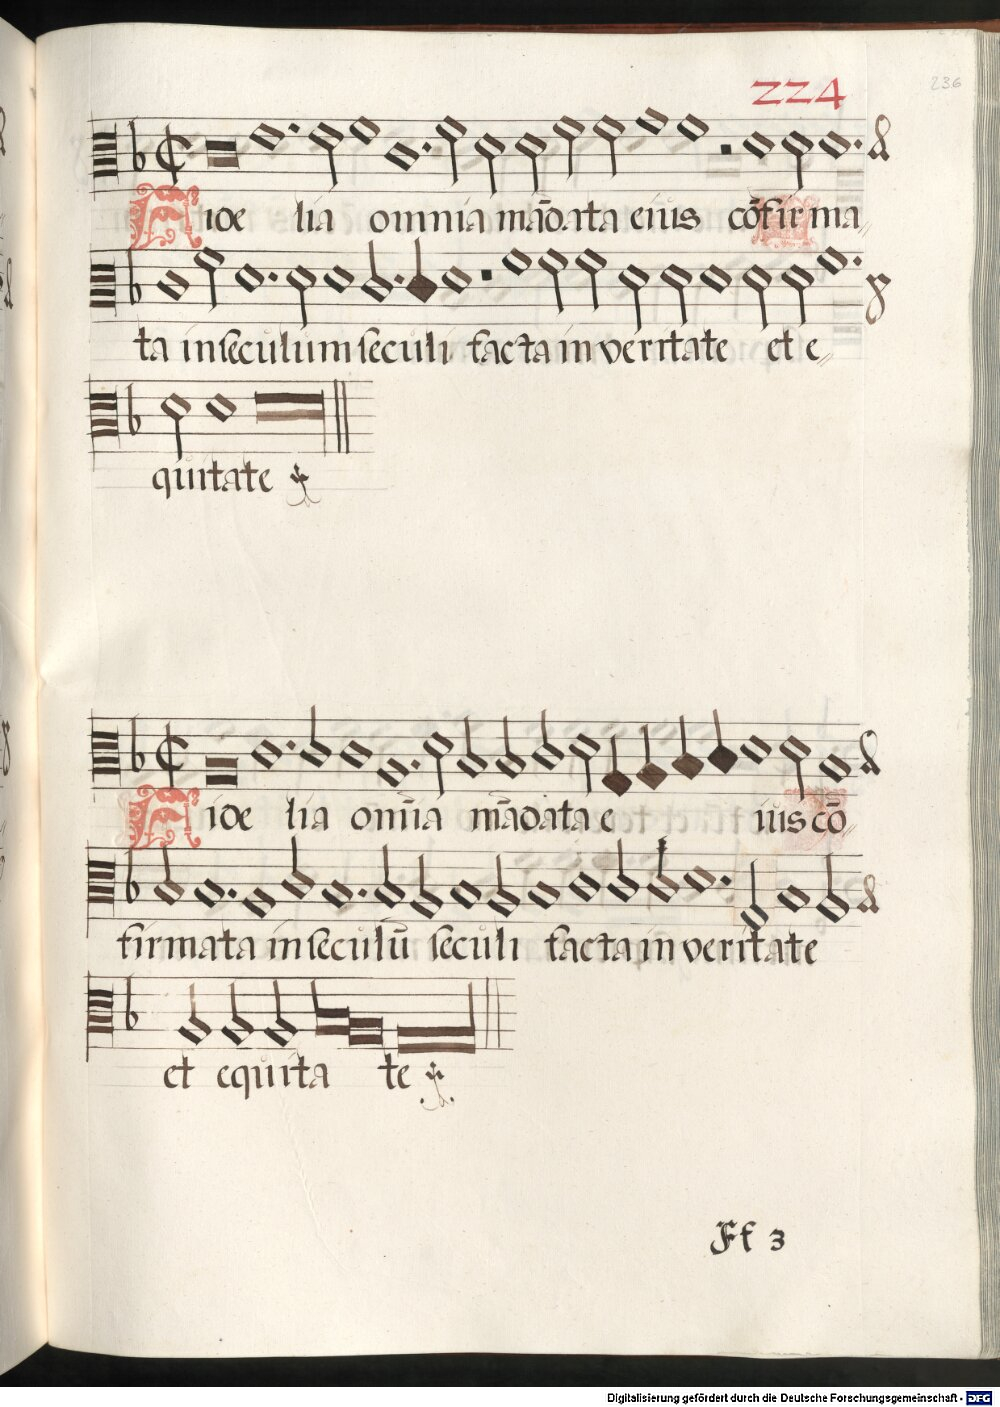 224
236
Fide lia omnia mādata eius cōfirma
ta in seculum seculi facta in veritate et e
quitate
Fide lia omīa mādata e ius cō
firmata in seculū seculi facta in veritate
et equita te
Ff 3
Digitalisierung gefördert durch die Deutsche Forschungsgemeinschaft - DFG